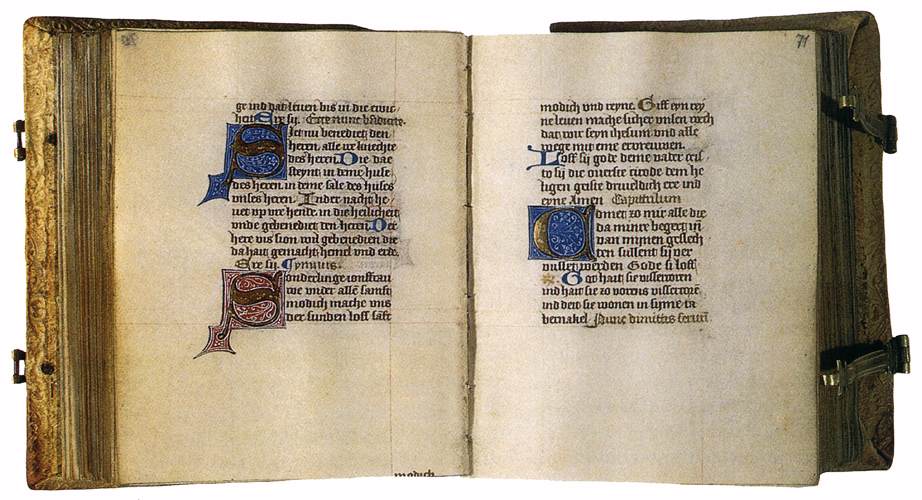 ge ind dat leuen bis in die ewic-
heit Ere sij. Ecce nunc bñdicite.
Siet nu benedict den
heren, alle ir knechte
des heren. Die dae
steynt in deme huse
des heren, in deme sale des huses
onses heren. In der nacht he-
uet up ure hende, in die heilicheit
unde gebenediet den heren. Der
here uis sion, wil gebenedien, die
da hait gemacht, hemel und erde.
Ere sij. Ymnus.
Sonderlinge ionffrau-
we under allē samft-
modich mache uns
der sunden loss, sāft
modich
71
modich und reyne. Giff eyn rey-
ne leuen mache sicher unsen wech
dat, wir seyn ihesum, und alle
wege mit eme ervreuwen.
Loff sij gode deme vater cris-
to sij die ouerste zierode dem he-
ligen geiste drueldich ere ind
eyne Amen. Capittulum
Comet, zo mir alle die
da minre begert, in
van mijnen geslech
ten sullent, sij ver-
vullet werden Gode si loff
Got hait sie uisserkorn
ind hait sie zo vorens
ind deit sie wonen in syme ta-
bernakel. Nunc dimittis servū